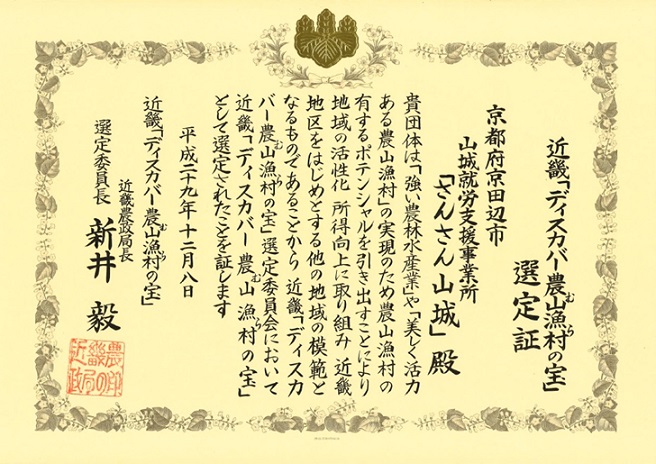 近畿「ディスカバー農山漁村の宝」
むら
選定証
京都府京田辺市
山城就労支援事業所
「さんさん山城」殿
貴団体は「強い農林水産業」や「美しく活力
ある農山漁村」の実現のため農山漁村の
有するポテンシャルを引き出すことにより
地域の活性化 所得向上に取り組み 近畿
地区をはじめとする他の地域の模範と
なるものであることから 近畿「ディスカ
バー農山漁村の宝」選定委員会において
むら
近畿「ディスカバー農山漁村の宝」
むら
として選定されたことを証します
平成二十九年十二月八日
近畿「ディスカバー農山漁村の宝」
むら
選定委員長
近畿農政局長
新井 毅
農
畿
近
印
の
局
政